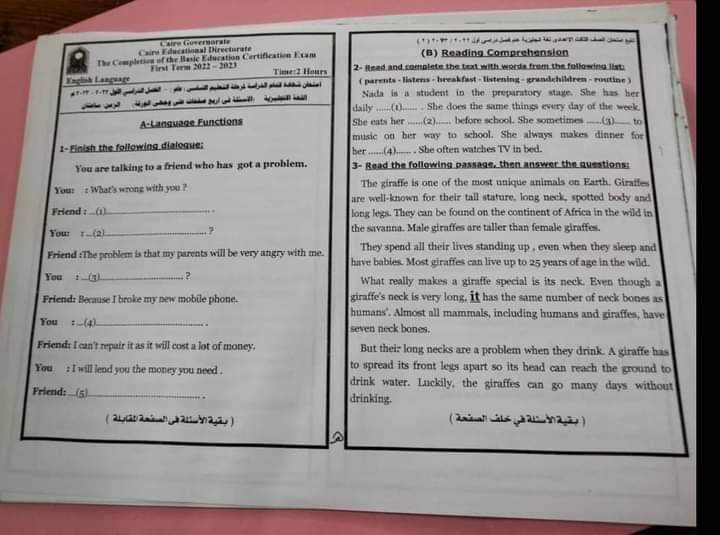 Cairo Governorate
Cairo Educational Directorate
The Completion of the Basic Education Certification Exam
First Term 2022 – 2023
English Language Time:2 Hours
اللغة الانجليزية الأسئلة فى أربع صفحات على وجهى الورقة. الزمن ساعتان
A-Language Functions
1-Finish the following dialogue:
You are talking to a friend who has got a problem.
You: : What's wrong with you ?
Friend : ...(1)............................ .
You: : ...(2)............................ ?
Friend :The problem is that my parents will be very angry with me.
You : ...(3)............................ ?
Friend: Because I broke my new mobile phone.
You : ...(4)............................ .
Friend: I can't repair it as it will cost a lot of money.
You : I will lend you the money you need .
Friend: ...(5)............................
( بقية الأسئلة فى الصفحة المقابلة )
(B) Reading Comprehension
2- Read and complete the text with words from the following list:
( parents - listens - breakfast - listening - grandchildren - routine )
Nada is a student in the preparatory stage. She has her
daily ......(1)...... . She does the same things every day of the week.
She eats her ......(2)...... before school. She sometimes ......(3)...... to
music on her way to school. She always makes dinner for
her ......(4)...... . She often watches TV in bed.
3- Read the following passage, then answer the questions:
The giraffe is one of the most unique animals on Earth. Giraffes
are well-known for their tall stature, long neck, spotted body and
long legs. They can be found on the continent of Africa in the wild in
the savanna. Male giraffes are taller than female giraffes.
They spend all their lives standing up , even when they sleep and
have babies. Most giraffes can live up to 25 years of age in the wild.
What really makes a giraffe special is its neck. Even though a
giraffe's neck is very long, it has the same number of neck bones as
humans'. Almost all mammals, including humans and giraffes, have
seven neck bones.
But their long necks are a problem when they drink. A giraffe has
to spread its front legs apart so its head can reach the ground to
drink water. Luckily, the giraffes can go many days without
drinking.
( بقية الأسئلة فى خلف الصفحة )